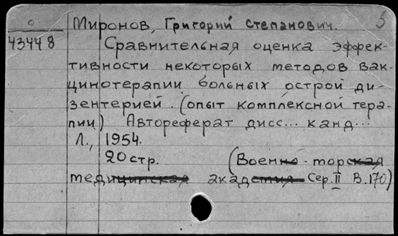 О
43448
Миронов, Григорий Степанович. 5
Сравнительная оценка эффек-
тивности некоторых методов вак-
цинотерапии больных острой ди-
зентерией. (опыт комплексной тера-
пии) Автореферат дисс... канд...
Л., 1954.
20 стр. (Военно-морская
медицинская академия Сер. II В. 170)